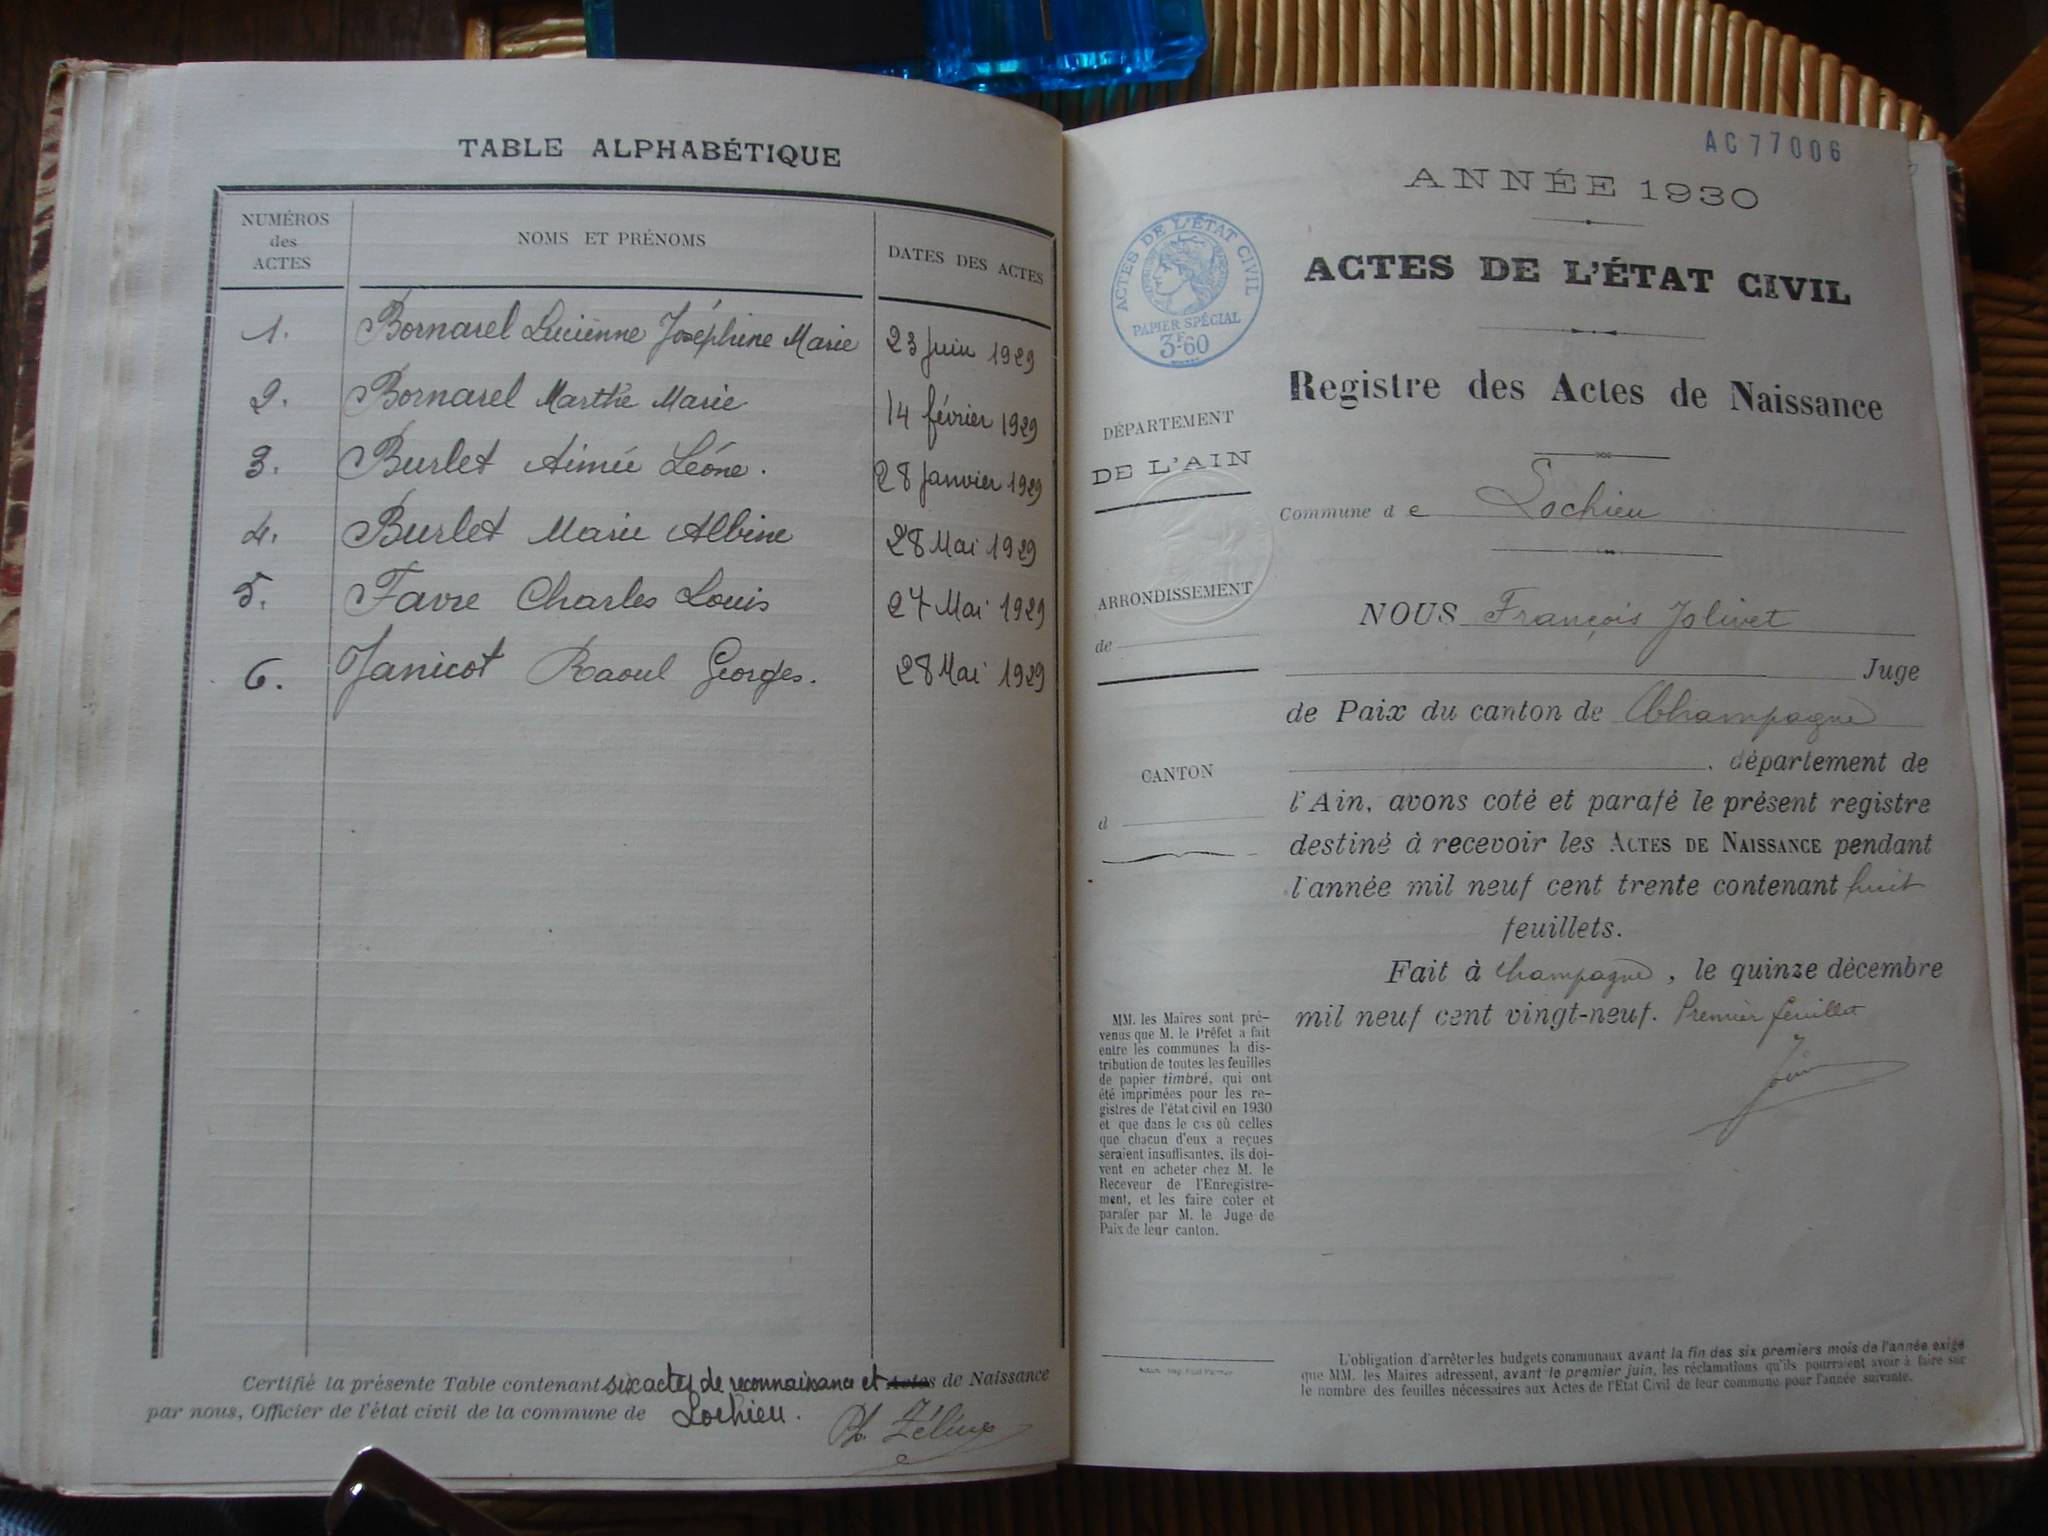 TABLE ALPHABÉTIQUE
NUMÉROS
des
ACTES
NOMS ET PRÉNOMS
DATES DES ACTES
1. Bornarel Lucienne Joséphine Marie 23 juin 1929
2. Bornarel Marthe Marie 14 février 1929
3. Burlet Aimée Léone. 28 janvier 1929
4. Burlet Marie Albine 28 Mai 1929
5. Favre Charles Louis 27 Mai 1929
6. Janicot Raoul Georges. 28 Mai 1929
Certifié la présente Table contenant six actes de reconnaissance et Actes de Naissance
par nous, Officier de l'état civil de la commune de Lochieu.
AC 77006
ANNÉE 1930
ACTES DE L'ÉTAT CIVIL
PAPIER SPÉCIAL
3F.60
ACTES DE L'ÉTAT CIVIL
Registre des Actes de Naissance
DÉPARTEMENT
DE L'AIN
Commune de Lochieu
ARRONDISSEMENT
de
CANTON
d
NOUS François Jolivet
Juge
de Paix du canton de Champagne
, département de
l'Ain, avons coté et parafé le présent registre
destiné à recevoir les ACTES DE NAISSANCE pendant
l'année mil neuf cent trente contenant huit
feuillets.
Fait à Champagne, le quinze décembre
mil neuf cent vingt-neuf. Premier feuillet
MM. les Maires sont pré-
venus que M. le Préfet a fait
entre les communes la dis-
tribution de toutes les feuilles
de papier timbré, qui ont
été imprimées pour les re-
gistres de l'état civil en 1930
et que dans le cas où celles
que chacun d'eux a reçues
seraient insuffisantes, ils doi-
vent en acheter chez M. le
Receveur de l'Enregistre-
ment, et les faire coter et
parafer par M. le Juge de
Paix de leur canton.
L'obligation d'arrêter les budgets communaux avant la fin des six premiers mois de l'année exige
que MM. les Maires adressent, avant le premier juin, les réclamations qu'ils pourraient avoir à faire sur
le nombre des feuilles nécessaires aux Actes de l'Etat Civil de leur commune pour l'année suivante.